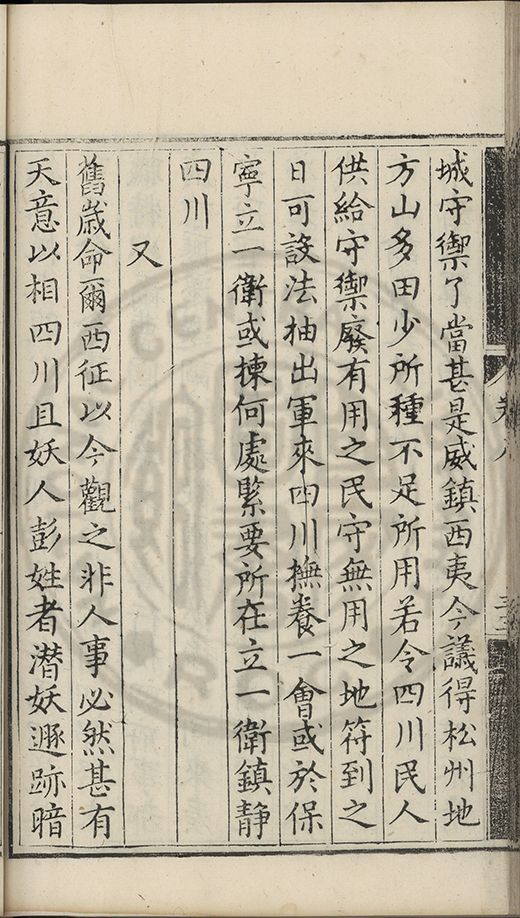 城守禦了當甚是威鎮西夷今議得松州地
方山多田少所種不足所用若令四川民人
供給守禦廢有用之民守無用之地符到之
日可設法抽出軍來四川撫養一會或於保
寧立一衛或揀何處緊要所在立一衛鎮靜
四川
又
舊歲命爾西征以今觀之非人事必然甚有
天意以相四川且妖人彭姓者潜妖遯跡暗